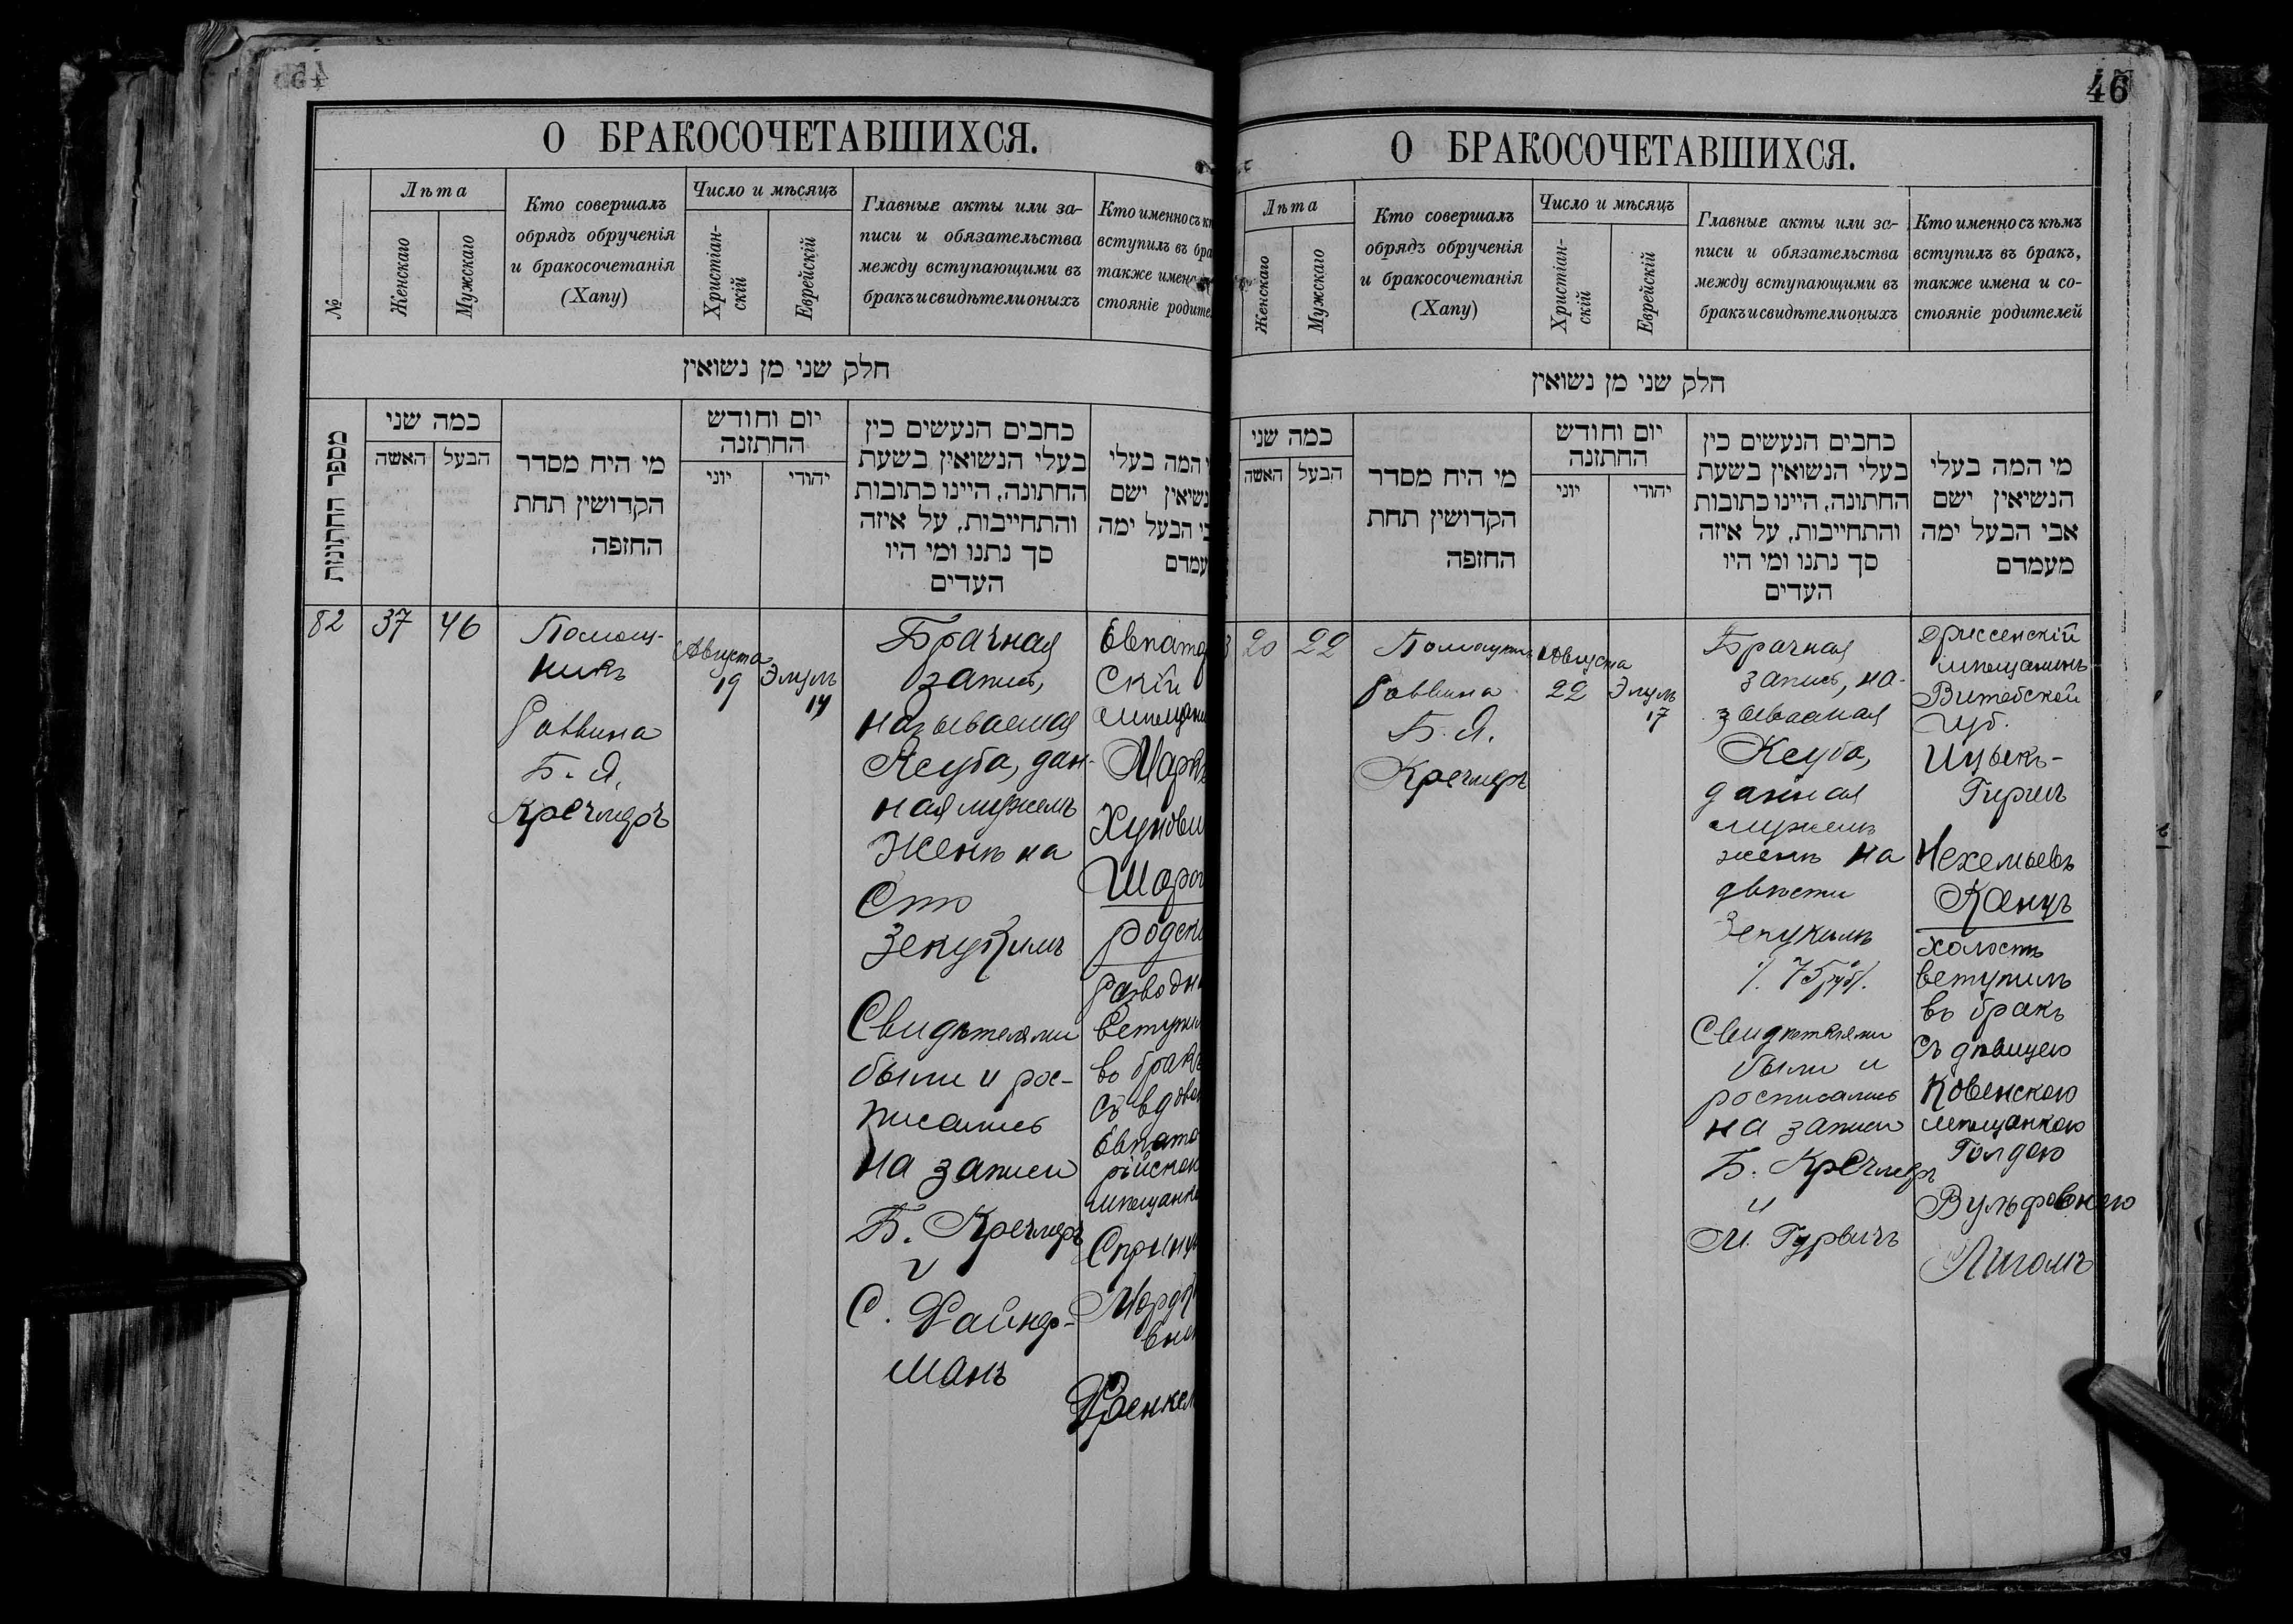 О БРАКОСОЧЕТАВШИХСЯ.
№
Лѣта
Женскаго
Мужскаго
Кто совершалъ
обрядъ обрученія
и бракосочетанія
(Хапу)
Число и мѣсяцъ
Христіан-
скій
Еврейскій
Главные акты или за-
писи и обязательства
между вступающими въ
бракъ и свидѣтели оныхъ
Кто именно съ
вступилъ въ бра
также имен
стояніе родите
חלק שני מן נשואין
מספר החתונות
כמה שני
האשה
הבעל
מי היח מסדר
הקדושין תחת
החופה
יום וחודש
החתונה
יוני
יהודי
כחבים הנעשים כין
בעלי הנשואין בשעת
החתונה, היינו כתובות
והתחייבות, על איזה
סך נתנו ומי היו
העדים
המה בעלי
נשיאין ישם
בי הבעל ימה
עמדם
82
37
46
Помощ-
никъ
Раввина
Б. Я.
Кречмеръ
Августа
19
Элулъ
14
Брачная
запись,
называемая
Ксуба, дан-
ная мужемъ
женѣ на
Сто
Зекукимъ
Свидѣтелями
были и рос-
писались
на записи
Б. Кречмеръ
и
С. Файнер-
манъ
Евпатор
скій
мѣщани
Маркъ
Хунови
Шарог
родск
разводн
вступил
въ бракъ
съ вдово
Евпато
рійскою
мѣщанко
Спринц
Мордк
вно
Френкел
46
О БРАКОСОЧЕТАВШИХСЯ.
Лѣта
Женскаго
Мужскаго
Кто совершалъ
обрядъ обрученія
и бракосочетанія
(Хапу)
Число и мѣсяцъ
Христіан-
скій
Еврейскій
Главные акты или за-
писи и обязательства
между вступающими въ
бракъ и свидѣтели оныхъ
Кто именно съ кѣмъ
вступилъ въ бракъ,
также имена и со-
стояніе родителей
חלק שני מן נשואין
כמה שני
האשה
הבעל
מי היח מסדר
הקדושין תחת
החופה
יום וחודש
החתונה
יוני
יהודי
כחבים הנעשים כין
בעלי הנשואין בשעת
החתונה, היינו כתובות
והתחייבות, על איזה
סך נתנו ומי היו
העדים
מי המה בעלי
הנשיאין ישם
אבי הבעל ימה
מעמדם
3
20
22
Помощникъ
Раввина
Б. Я.
Кречмеръ
Августа
22
Элулъ
17
Брачная
запись, на-
зываемая
Ксуба,
данная
мужемъ
женѣ на
двѣсти
Зекукимъ
75 руб.
Свидѣтелями
были и
росписались
на записи
Б. Кречмеръ
и
М. Гурвичъ
Дриссенскій
мѣщанинъ
Витебской
губ.
Ицыкъ-
Гиршъ
Нехемьевъ
Канцъ
холостъ
вступилъ
въ бракъ
съ дѣвицею
Ковенскою
мѣщанкою
Голдою
Вульфовною